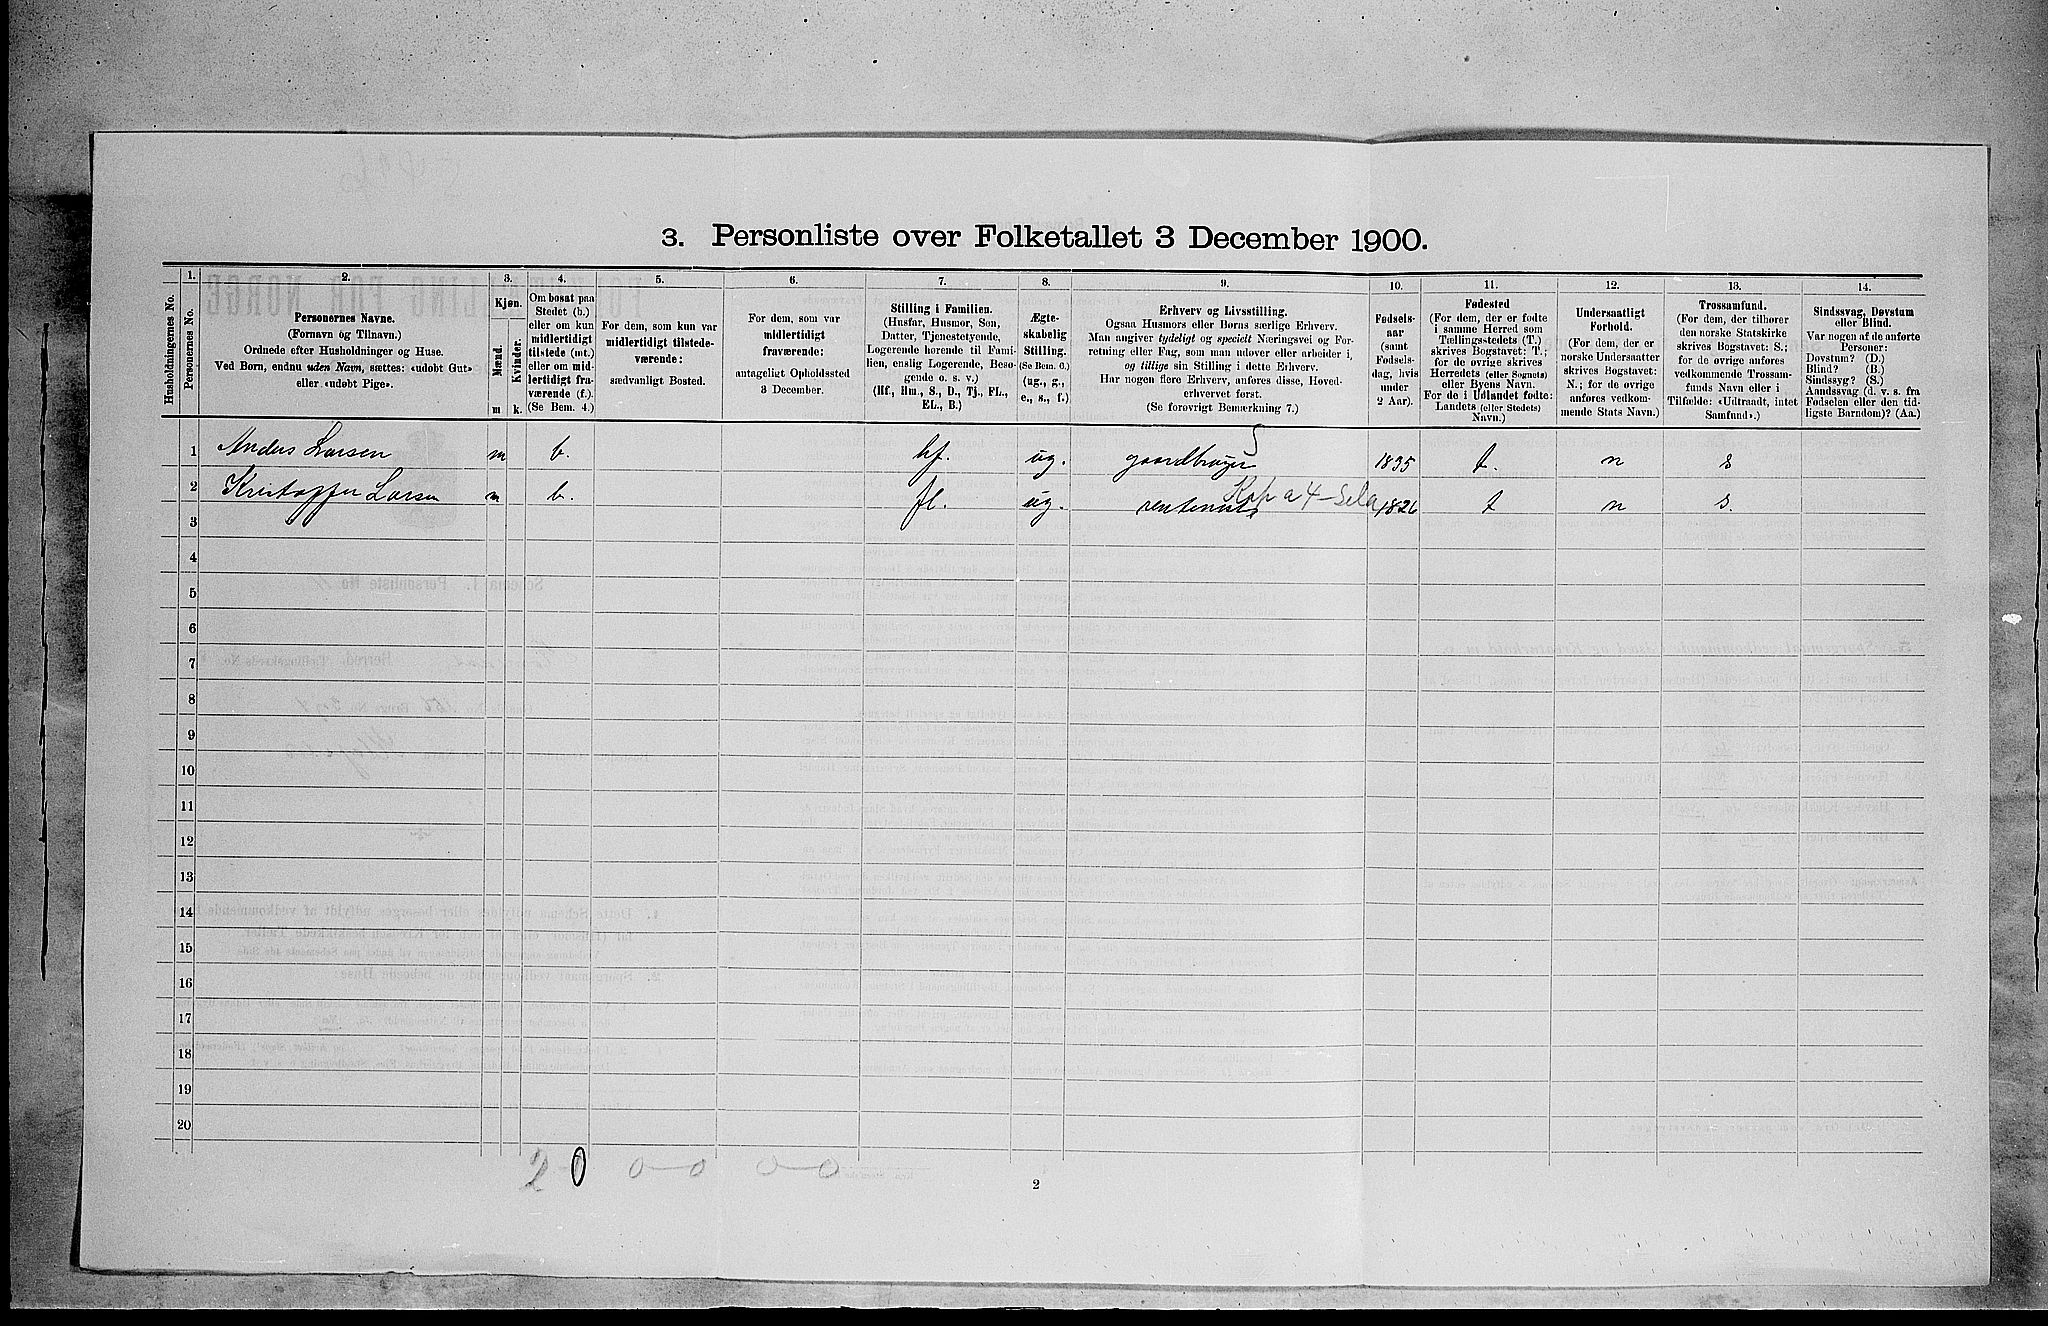 3. Personliste over Folketallet 3 December 1900.
Husholdningernes No.
1.
Personernes No.
2.
Personernes Navne.
(Fornavn og Tilnavn.)
Ordnede efter Husholdninger og Huse.
Ved Børn, endnu uden Navn, sættes: «udøbt Gut»
eller «udøbt Pige».
3.
Kjøn.
Mænd.
Kvinder.
m
k.
4.
Om bosat paa
Stedet (b.)
eller om kun
midlertidigt
tilstede (mt.)
eller om mid-
lertidigt fra-
værende (f.).
(Se Bem. 4.)
5.
For dem, som kun var
midlertidigt tilstede-
værende:
sædvanligt Bosted.
6.
For dem, som var
midlertidigt
fraværende:
antageligt Opholdssted
3 December.
7.
Stilling i Familien.
(Husfar, Husmor, Søn,
Datter, Tjenestetyende,
Logerende hørende til Fami-
lien, enslig Logerende, Besø-
gende o. s. v.)
(Hf., Hm., S., D., Tj., FL.,
EL., B.)
8.
Ægte-
skabelig
Stilling.
(Se Bem. 6.)
(ug., g.,
e., s., f.)
9.
Erhverv og Livsstilling.
Ogsaa Husmors eller Børns særlige Erhverv.
Man angiver tydeligt og specielt Næringsvei og For-
retning eller Fag, som man udøver eller arbeider i,
og tillige sin Stilling i dette Erhverv.
Har nogen flere Erhverv, anføres disse, Hoved-
erhvervet først.
(Se forøvrigt Bemerkning 7.)
10.
Fødsels-
aar
(samt
Fødsels-
dag, hvis
under
2 Aar).
11.
Fødested
(For dem, der er fødte
i samme Herred som
Tællingsstedets (T.)
skrives Bogstavet: T.;
for de øvrige skrives
Herredets (eller Sognets)
eller Byens Navn.
For de i Udlandet fødte:
Landets (eller Stedets)
Navn.)
12.
Undersaatligt
Forhold.
(For dem, der er
norske Undersaatter
skrives Bogstavet:
N.; for de øvrige
anføres vedkom-
mende Stats Navn.)
13.
Trossamfund.
(For dem, der tilhører
den norske Statskirke
skrives Bogstavet: S.;
for de øvrige anføres
vedkommende Trossam-
funds Navn eller i
Tilfælde: «Udtraadt, intet
Samfund».)
14.
Sindssvag, Døvstum
eller Blind.
Var nogen af de anførte
Personer:
Døvstum? (D.)
Blind? (B.)
Sindssyg? (S.)
Aandssvag (d. v. s. fra
Fødselen eller den tid-
ligste Barndom)? (Aa.)
1 Anders Larsen m b. hf. ug. gaardbruger S 1835 t. n s
2 Kristoffer Larsen m b. fl. ug. rentenist Kap a 4 1826 t n s.
3
4
5
6
7
8
9
10
11
12
13
14
15
16
17
18
19
20
2 0 0-0 0-0
2